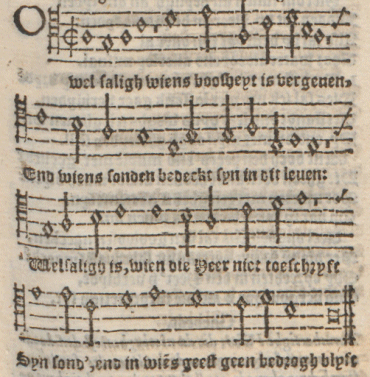 O
wel saligh wiens boosheyt is vergeuen,
End wiens sonden bedeckt syn in dit leuen:
Welsaligh is, wien die Heer niet toeschryft
Syn sond', end in wiēs geest geen bedrogh blyft